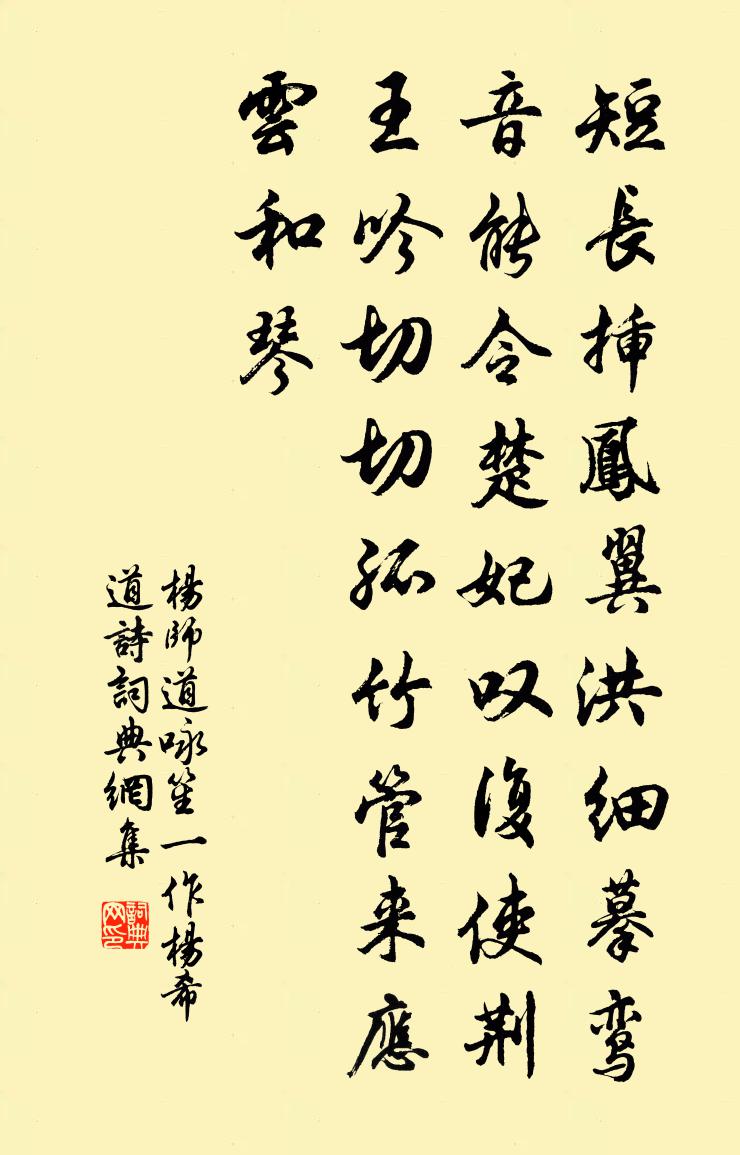 短長插鳳翼洪細摹鸾
音能令楚妃叹復使荆
王吟切切孤竹管来應
雲和琴
楊師道咏笙一作楊希
道詩詞典網集
詞典网印